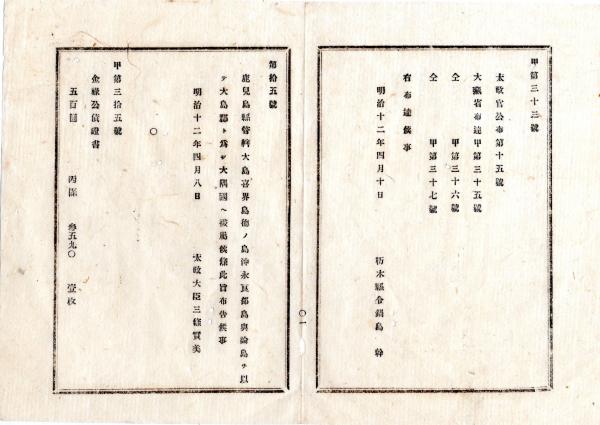 甲第三十三號
太政官公布第十五號
大藏省布達甲第三十五號
仝 甲第三十六號
仝 甲第三十七號
右布達候事
明治十二年四月十日
栃木縣令鍋島 幹
〇一
第拾五號
鹿兒島縣管轄大島喜界島德ノ島沖永良部島與論島ヲ以
テ大島郡ト爲シ大隅國ヘ被屬候條此旨布告候事
明治十二年四月八日
太政大臣三條實美
〇
甲第三拾五號
金祿公債證書
五百圓 丙 參五九〇 壹枚